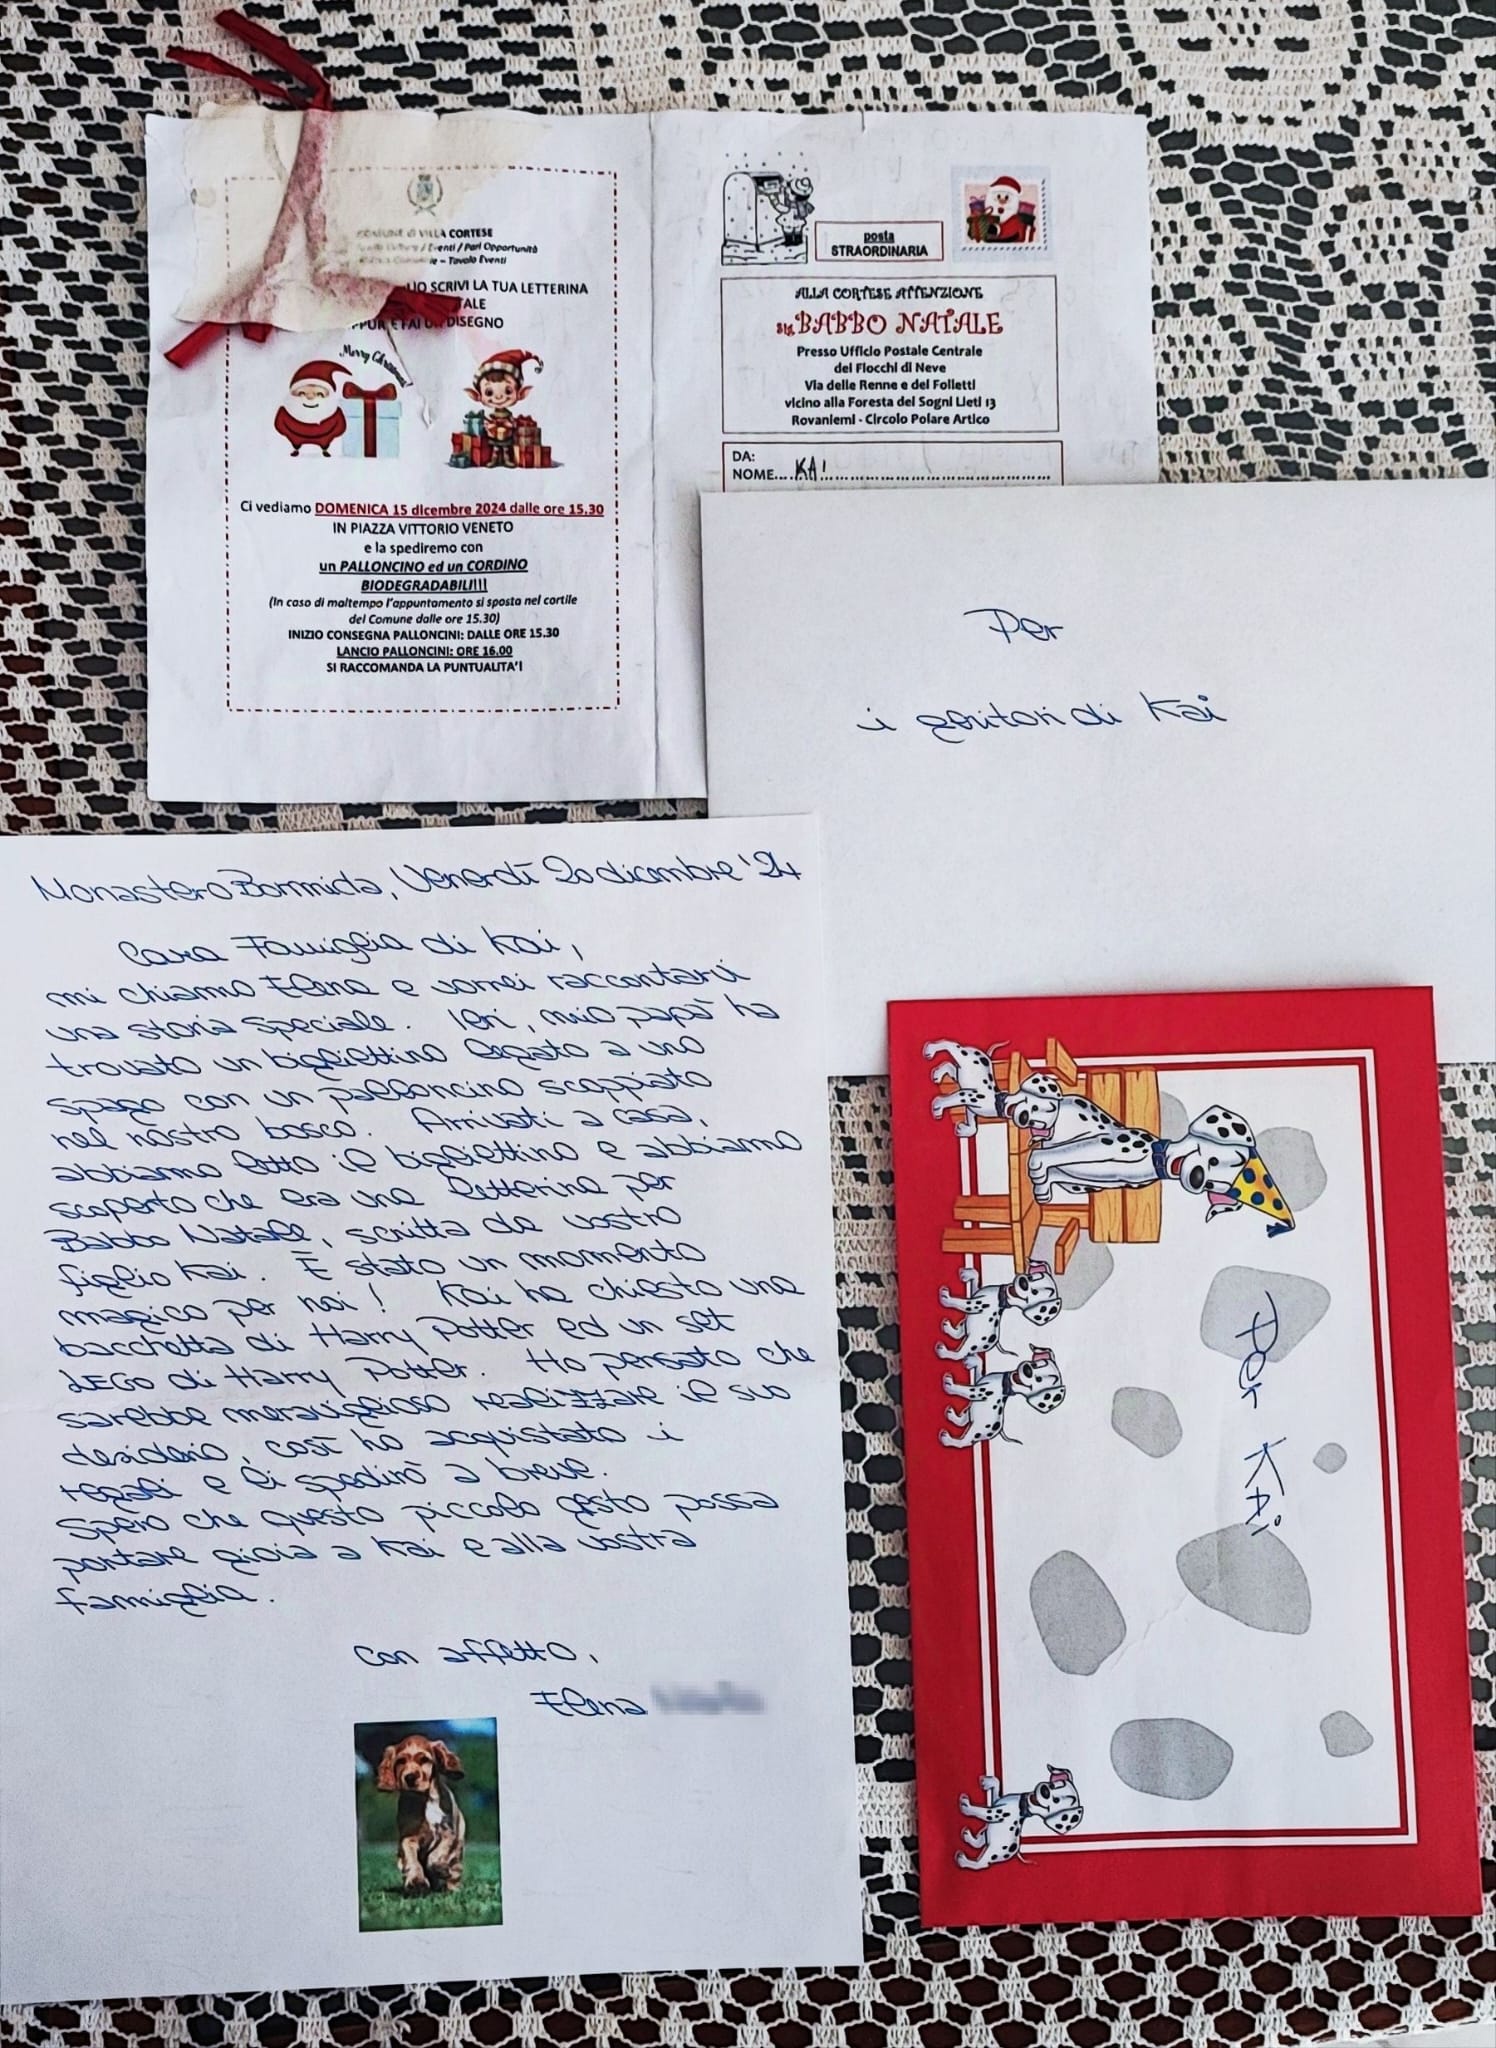 COMUNE DI VILLA CORTESE
Eventi / Pari Opportunità
– Tavolo Eventi
SCRIVI LA TUA LETTERINA
FAI UN DISEGNO
Merry Christmas!
Ci vediamo DOMENICA 15 dicembre 2024 dalle ore 15.30
IN PIAZZA VITTORIO VENETO
e la spediremo con
un PALLONCINO ed un CORDINO
BIODEGRADABILI!!!
(In caso di maltempo l'appuntamento si sposta nel cortile
del Comune dalle ore 15.30)
INIZIO CONSEGNA PALLONCINI: DALLE ORE 15.30
LANCIO PALLONCINI: ORE 16.00
SI RACCOMANDA LA PUNTUALITA'!
posta
STRAORDINARIA
ALLA CORTESE ATTENZIONE
Sig. BABBO NATALE
Presso Ufficio Postale Centrale
dei Fiocchi di Neve
Via delle Renne e dei Folletti
vicino alla Foresta dei Sogni Lieti 13
Rovaniemi - Circolo Polare Artico
DA:
NOME....KAI
Per
i genitori di Kai
Monastero Bormida, Venerdì 20 dicembre '24
Cara Famiglia di Kai,
mi chiamo Elena e vorrei raccontarvi
una storia speciale. Ieri, mio papà ha
trovato un bigliettino legato a uno
spago con un palloncino scoppiato
nel nostro bosco. Arrivati a casa,
abbiamo letto il bigliettino e abbiamo
scoperto che era una letterina per
Babbo Natale, scritta da vostro
figlio Kai. È stato un momento
magico per noi! Kai ha chiesto una
bacchetta di Harry Potter ed un set
LEGO di Harry Potter. Ho pensato che
sarebbe meraviglioso realizzare il suo
desiderio, così ho acquistato i
regali e li spedirò a breve.
Spero che questo piccolo gesto possa
portare gioia a Kai e alla vostra
famiglia.
Con affetto,
Elena
Per KAI